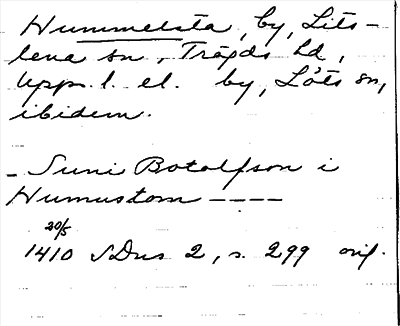 Hummelsta, by, Lits-
lena sn, Trögds hd,
Upps. l. el. by, Löts sn,
ibidem.
- Suni Botolfson i
Humustom ----
20/5
1410 SDns 2, s. 299 orig.